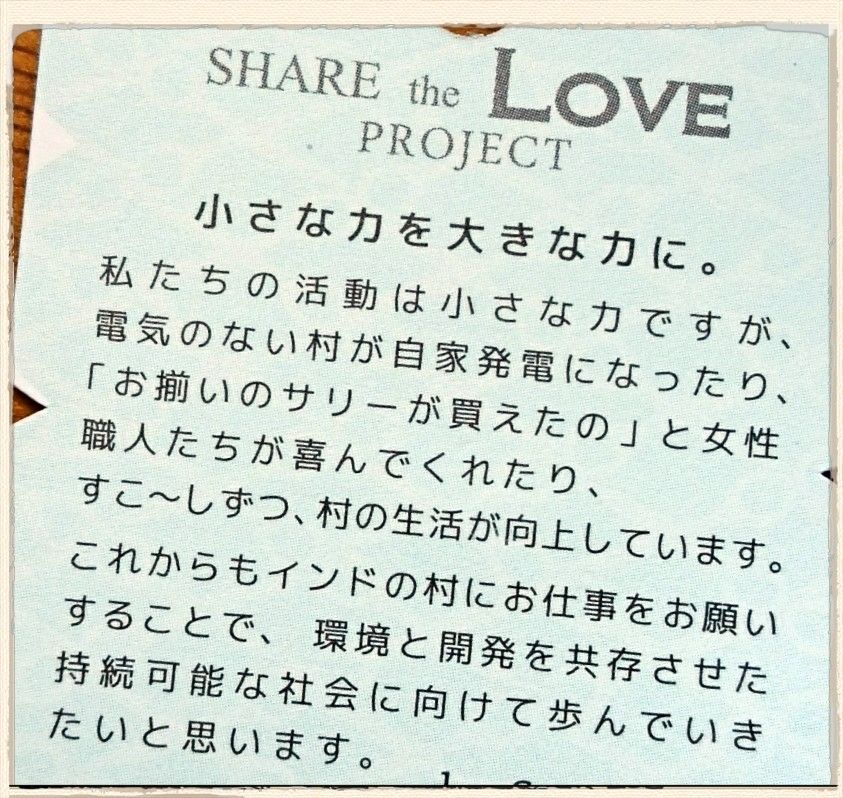 SHARE the LOVE
PROJECT
小さな力を大きな力に。
私たちの活動は小さな力ですが、
電気のない村が自家発電になったり、
「お揃いのサリーが買えたの」と女性
職人たちが喜んでくれたり、
すこ〜しずつ、村の生活が向上しています。
これからもインドの村にお仕事をお願い
することで、 環境と開発を共存させた
持続可能な社会に向けて歩んでいき
たいと思います。